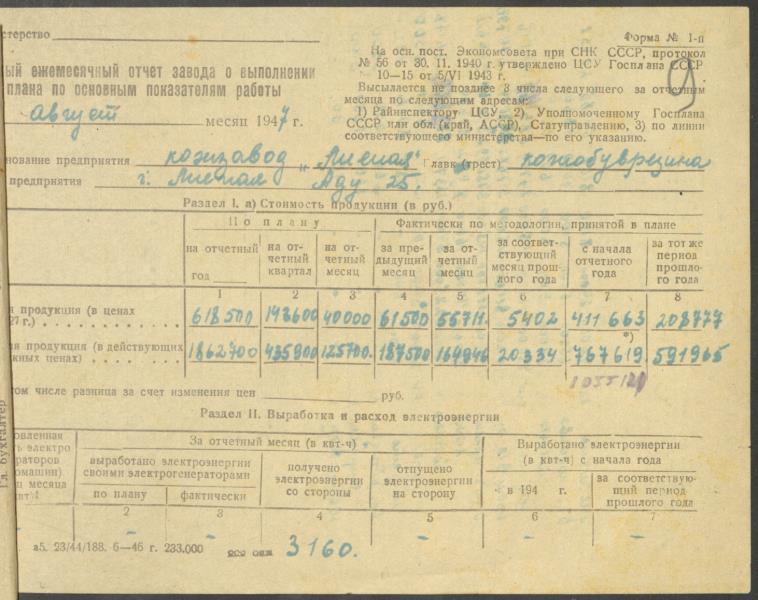 стерство
Форма № 1-п
На осн. пост. Экономсовета при СНК СССР, протокол
№ 56 от 30. 11. 1940 г. утверждено ЦСУ Госплана СССР
10—15 от 5/VI 1943 г.
Высылается не позднее 3 числа следующего за отчетным
месяца по следующим адресам:
1) Райинспектору ЦСУ, 2) Уполномоченному Госплана
СССР или обл. (край, АССР), Статуправлению, 3) по линии
соответствующего министерства—по его указанию.
ный ежемесячный отчет завода о выполнении
плана по основным показателям работы
август месяц 1947 г.
нование предприятия кожзавод Главк (трест)
предприятия г. 25.
Раздел I. а) Стоимость продукции (в руб.)
По плану Фактически по методологии, принятой в плане
на отчетный год на отчетный квартал на отчетный месяц за предыдущий месяц за отчетный месяц за соответствующий месяц прошлого года с начала отчетного года за тот же период прошлого года
1 2 3 4 5 6 7 8
я продукция (в ценах
27 г.) 618500 148600 40000 61500 5402 411663 208777
ая продукция (в действующих
жных ценах) 1862700 435900 125700 187500 20334 767619 *) 591965
том числе разница за счет изменения цен руб.
Раздел II. Выработка и расход электроэнергии
За отчетный месяц (в квт-ч) Выработано электроэнергии (в квт-ч) с начала года
выработано электроэнергии своими электрогенераторами получено электроэнергии со стороны отпущено электроэнергии на сторону в 194 г. за соответствующий период прошлого года
по плану фактически
2 3 4 5 6 7
- - 3160. - - -
а5. 23/44/188. 6—46 г. 233.000
Гл. бухгалтер